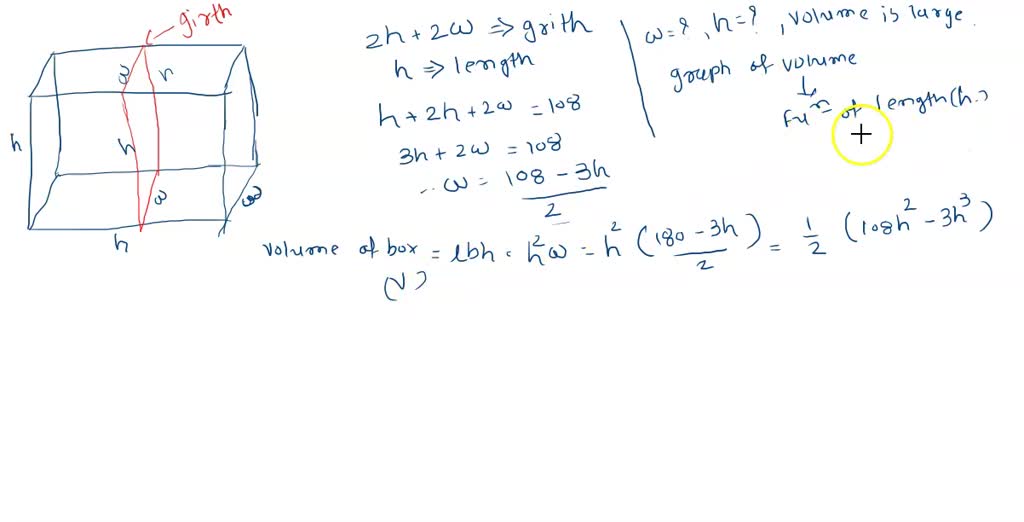 girth
ω h
h h
ω ω
h
2h + 2ω ⇒ grith
h ⇒ length
h + 2h + 2ω = 108
3h + 2ω = 108
∴ ω = (108 - 3h)/2
ω = ?, h = ?, volume is large.
graph of volume
↓
Fuⁿ of length(h.)
volume of box = lbh = h²ω = h² (180 - 3h)/2 = 1/2 (108h² - 3h³)
(V)